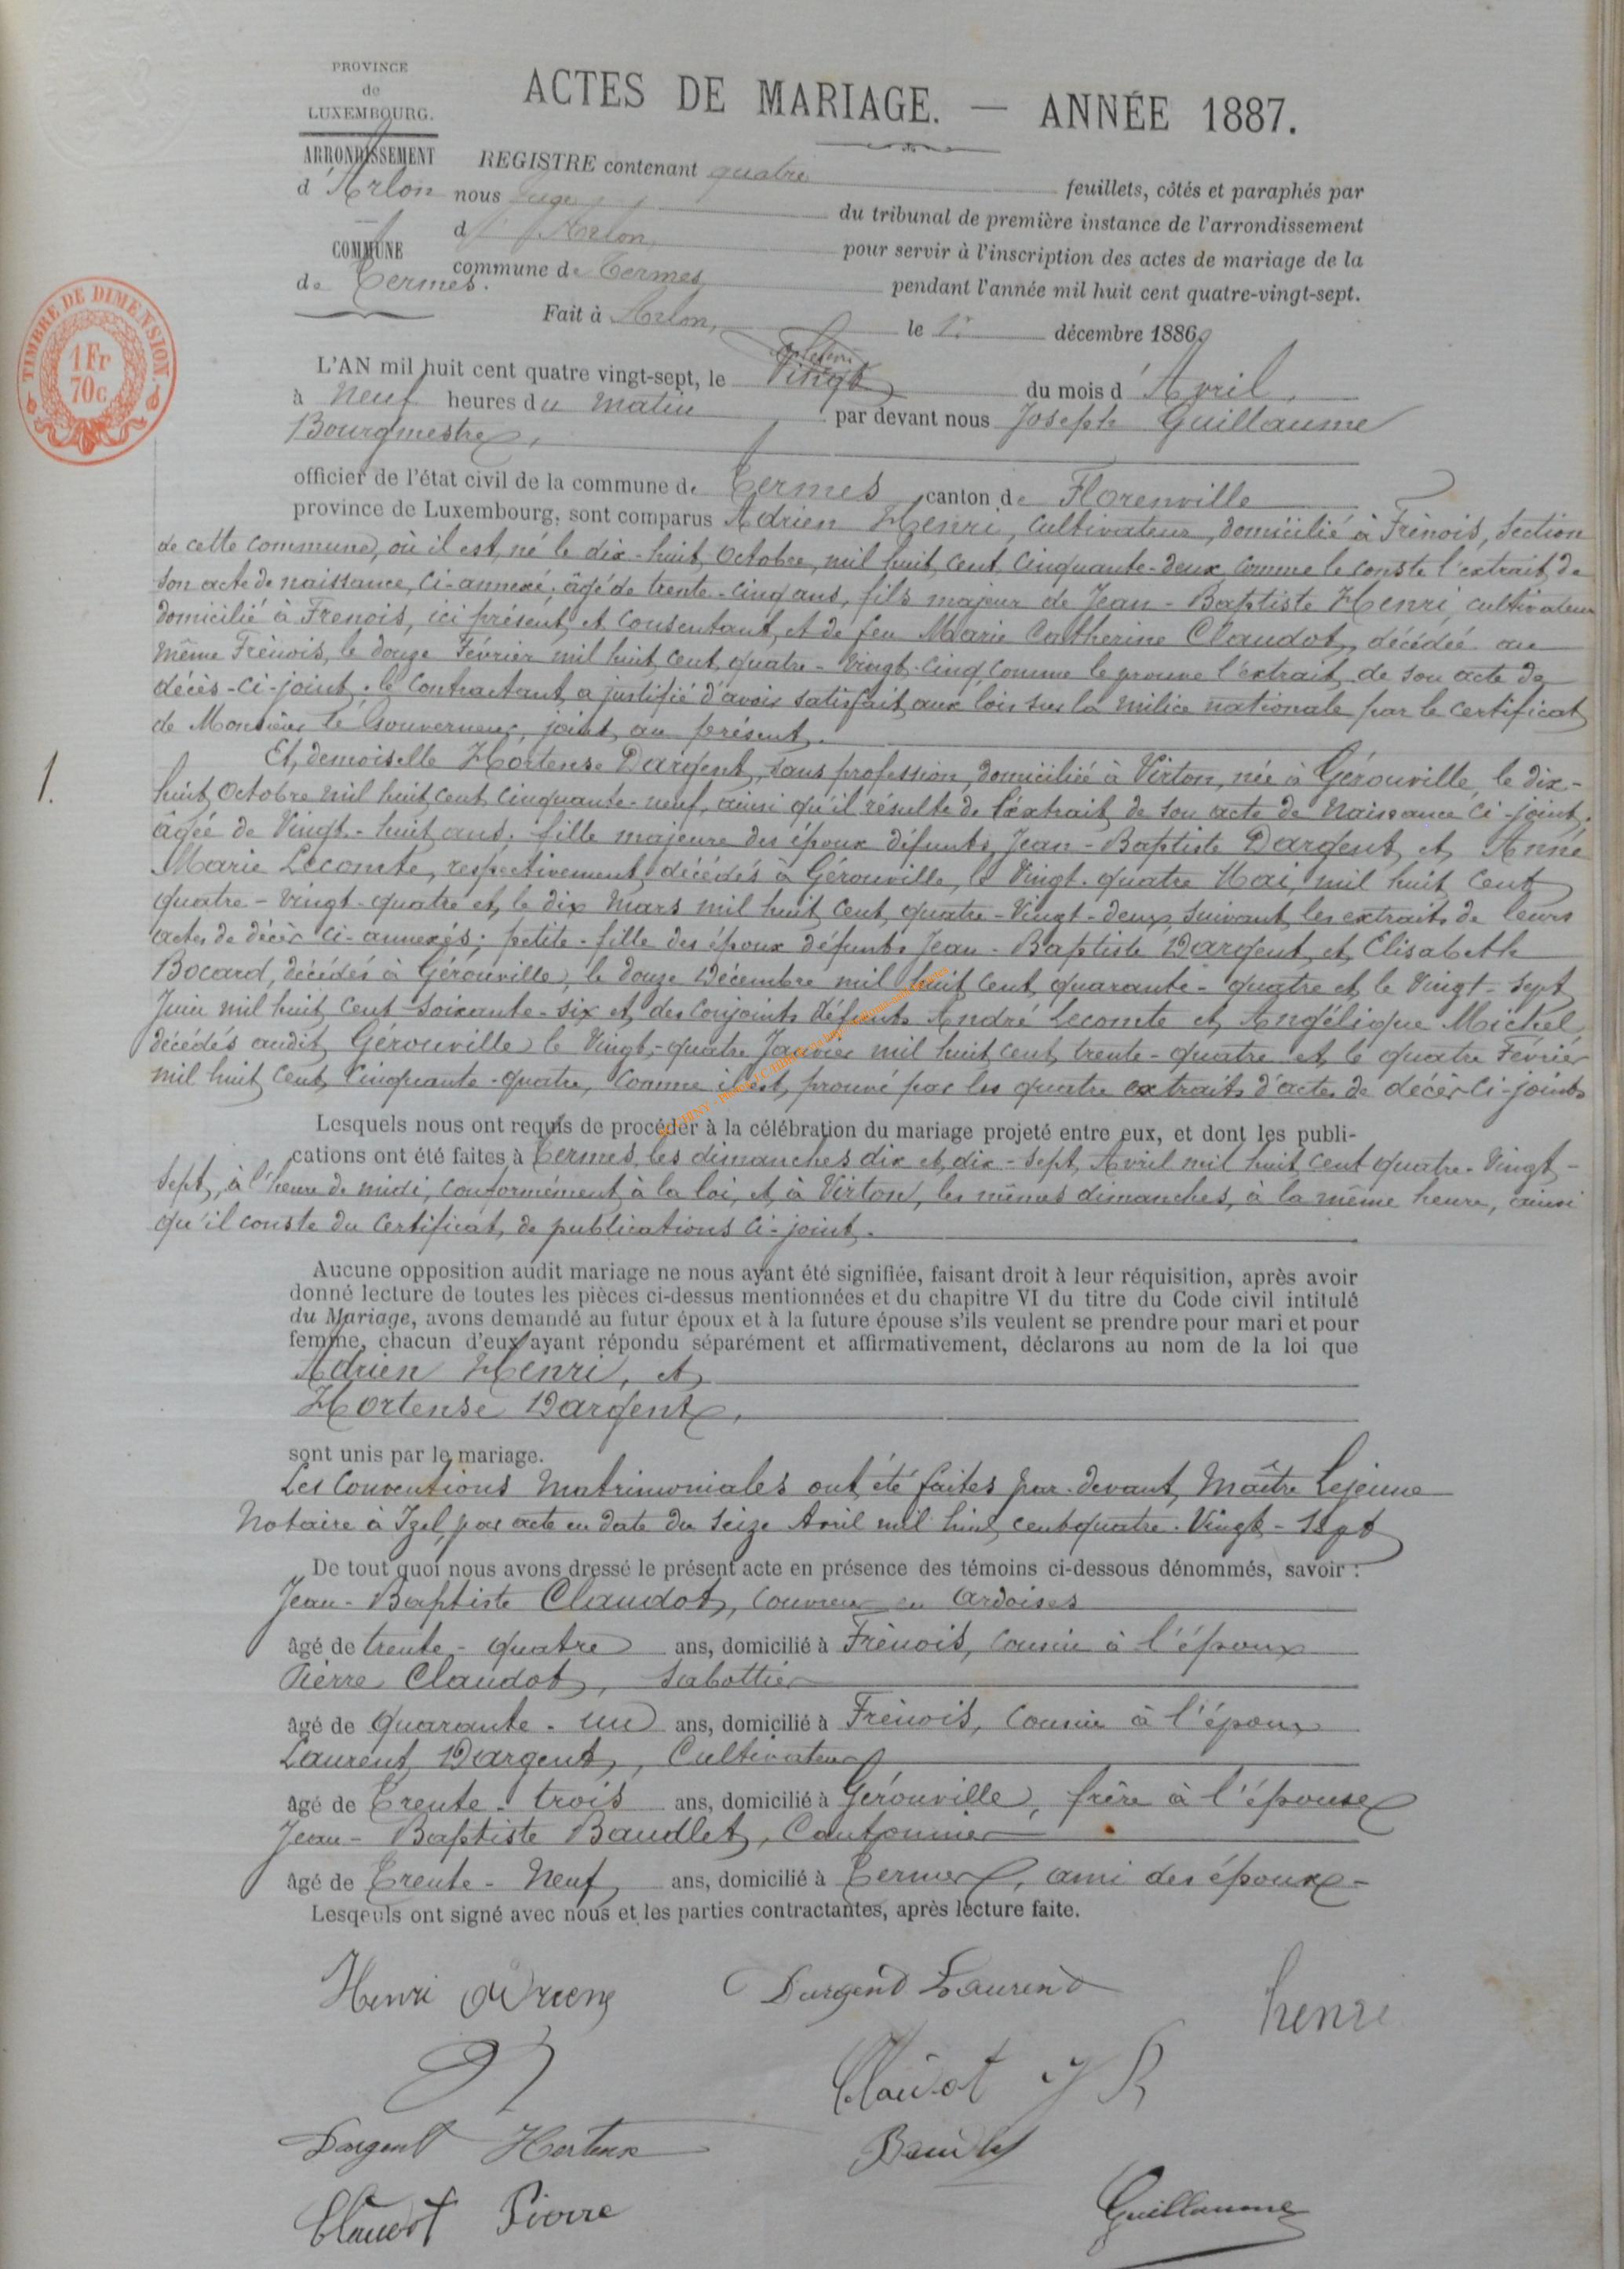 PROVINCE
de
LUXEMBOURG.
ARRONDISSEMENT
d'Arlon
COMMUNE
de Termes.
ACTES DE MARIAGE. — ANNÉE 1887.
REGISTRE contenant quatre feuillets, côtés et paraphés par
nous Juge du tribunal de première instance de l'arrondissement
d'Arlon, pour servir à l'inscription des actes de mariage de la
commune de Termes pendant l'année mil huit cent quatre-vingt-sept.
Fait à Arlon, le 1er décembre 1886.
TIMBRE DE DIMENSION.
1 Fr
70c
L'AN mil huit cent quatre vingt-sept, le Vingt du mois d'Avril,
à Neuf heures du matin par devant nous Joseph Guillaume
Bourgmestre,
officier de l'état civil de la commune de Termes canton de Florenville
province de Luxembourg, sont comparus Adrien Henri, cultivateur, domicilié à Frènois, Section
de cette commune, où il est né le dix-huit Octobre, mil huit cent cinquante-deux, comme le conste l'extrait de
son acte de naissance, ci-annexé; âgé de trente-cinq ans, fils majeur de Jean-Baptiste Henri, cultivateur
domicilié à Frenois, ici présent et consentant, et de feu Marie Catherine Claudot, décédée au
même Frènois, le douze Février mil huit cent quatre-vingt-cinq, comme le prouve l'extrait de son acte de
décès-ci-joint. le contractant a justifié d'avoir satisfait aux lois sur la milice nationale par le certificat
de Monsieur le Gouverneur, joint au présent.
1.
Et, demoiselle Hortense Dargent, sans profession, domiciliée à Virton, née à Gérouville, le dix-
huit Octobre mil huit cent cinquante-neuf, ainsi qu'il résulte de l'extrait de son acte de Naissance ci-joint,
âgée de Vingt-huit ans, fille majeure des époux défunts Jean-Baptiste Dargent et Anne
Marie Lecomte, respectivement décédés à Gérouville, le Vingt-quatre Mai, mil huit cent
quatre-vingt-quatre et le dix Mars mil huit cent quatre-Vingt-deux, suivant les extraits de leurs
actes de décès ci-annexés; petite-fille des époux défunts Jean-Baptiste Dargent et Elisabeth
Bocard, décédés à Gérouville, le douze Décembre mil huit cent quarante-quatre et le Vingt-sept
Juin mil huit cent soixante-six et des conjoints défunts André Lecomte et Angélique Michel,
décédés audit Gérouville le Vingt-quatre Janvier mil huit cent trente-quatre et le quatre Février
mil huit cent cinquante-quatre, comme il est prouvé par les quatre extraits d'actes de décès-ci-joints
Lesquels nous ont requis de procéder à la célébration du mariage projeté entre eux, et dont les publi-
cations ont été faites à Termes, les dimanches dix et dix-sept Avril mil huit cent quatre-Vingt-
sept, à l'heure de midi, conformément à la loi, et à Virton, les mêmes dimanches, à la même heure, ainsi
qu'il conste du certificat de publications ci-joint.
Aucune opposition audit mariage ne nous ayant été signifiée, faisant droit à leur réquisition, après avoir
donné lecture de toutes les pièces ci-dessus mentionnées et du chapitre VI du titre du Code civil intitulé
du Mariage, avons demandé au futur époux et à la future épouse s'ils veulent se prendre pour mari et pour
femme, chacun d'eux ayant répondu séparément et affirmativement, déclarons au nom de la loi que
Adrien Henri, et
Hortense Dargent,
sont unis par le mariage.
Les Conventions Matrimoniales ont été faites par-devant Maître Lejeune
Notaire à Izel, par acte en date du seize Avril mil huit cent quatre-Vingt-Sept
De tout quoi nous avons dressé le présent acte en présence des témoins ci-dessous dénommés, savoir :
Jean-Baptiste Claudot, couvreur en ardoises
âgé de trente-quatre ans, domicilié à Frènois, cousin à l'époux
Pierre Claudot, sabottier
âgé de quarante-un ans, domicilié à Frènois, cousin à l'époux
Laurent Dargent, Cultivateur
âgé de Trente-trois ans, domicilié à Gérouville, frère à l'épouse
Jean-Baptiste Baudlet, Cantonnier
âgé de Trente-Neuf ans, domicilié à Termes, ami des époux-
Lesqeuls ont signé avec nous et les parties contractantes, après lecture faite.
Henri Adrien Dargend Laurend henri
Claudot J B
Dargent Hortense Baudlet
Claudot Pierre Guillaume